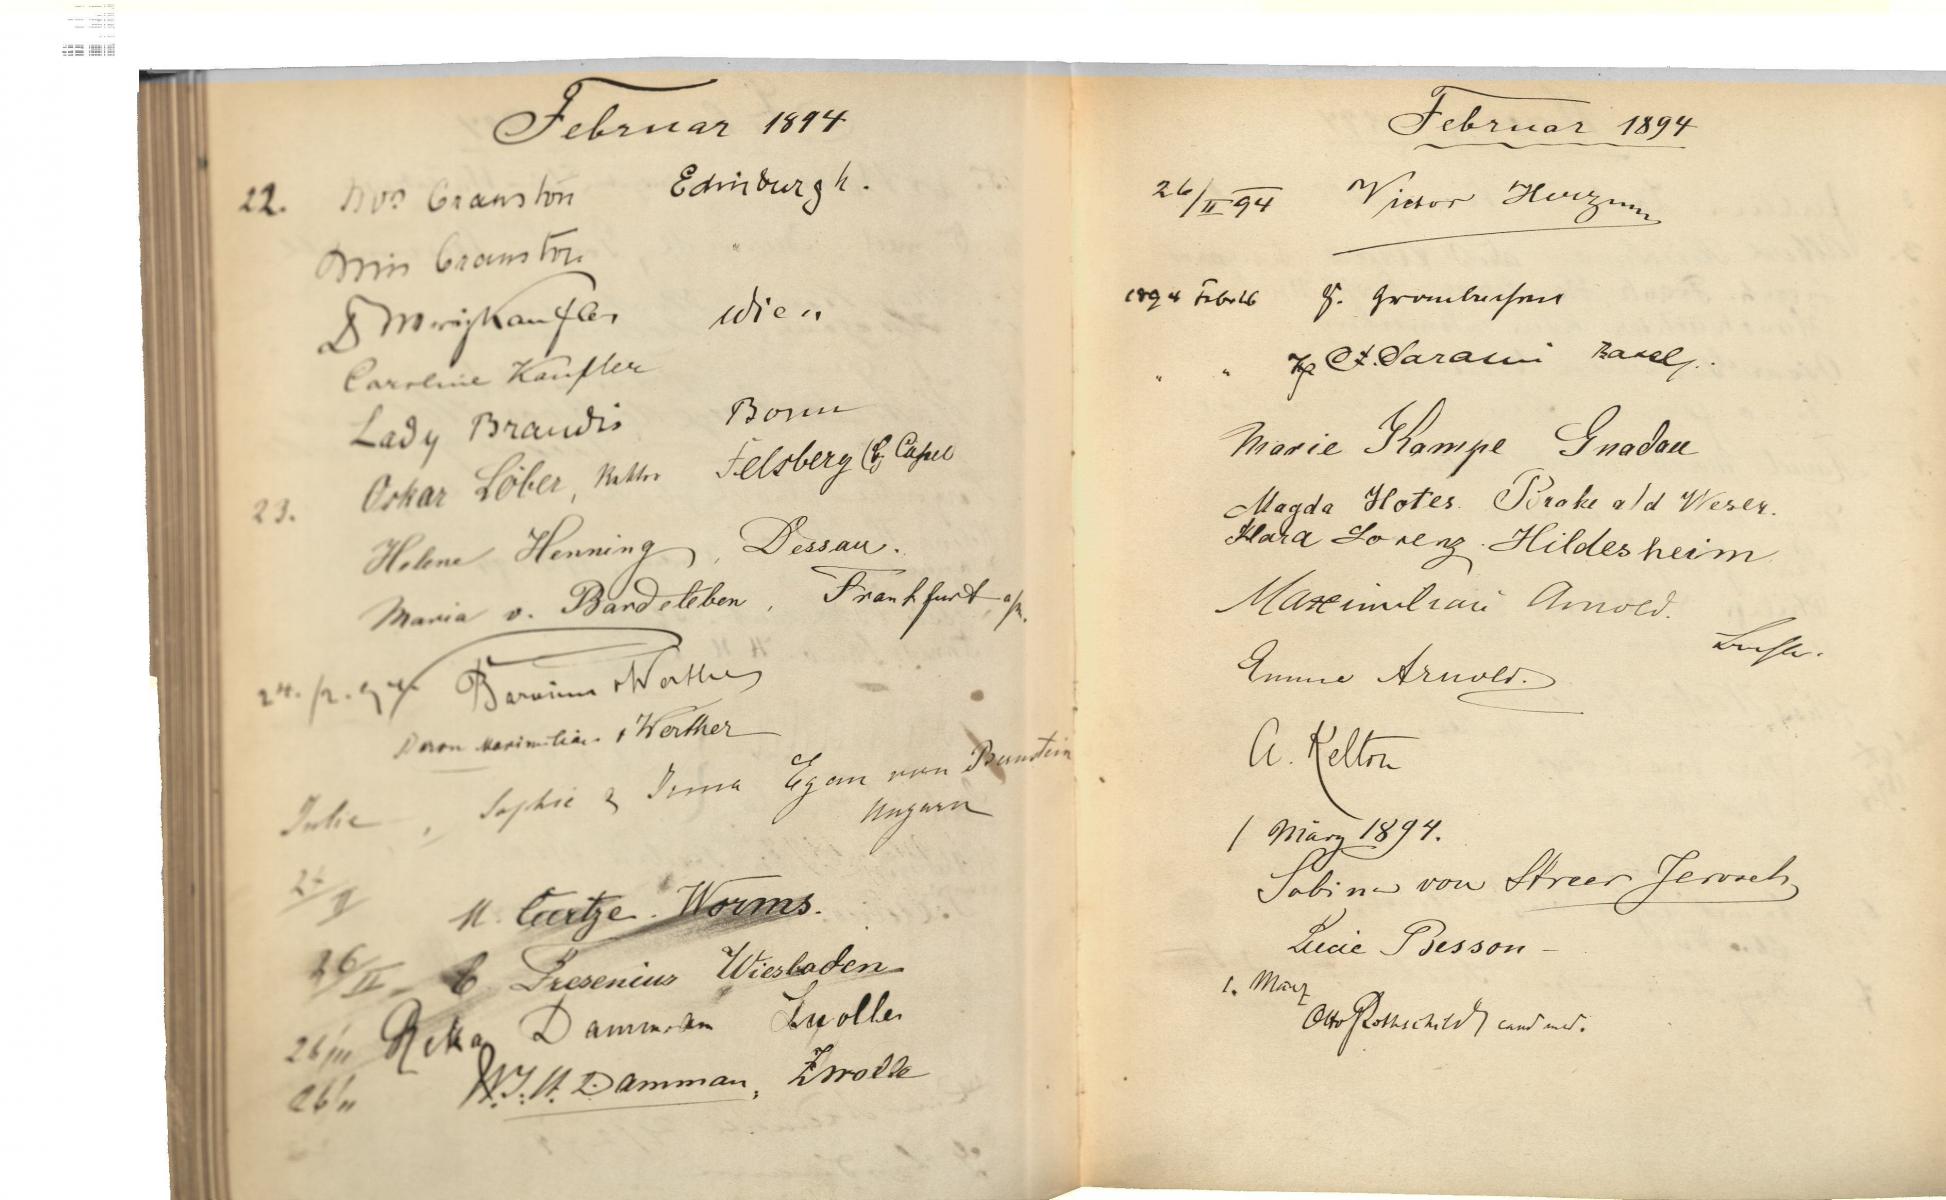 Februar 1894
22. Mrs Cranston Edinburgh.
Miss Cranston "
Dr Moriz Kaufler Wien
Caroline Kaufler
Lady Brandis Bonn
Oskar Löber, Rektor Felsberg (Bz Cassel
23.
Helene Henning, Dessau.
Maria v. Bardeleben, Frankfurt a/M.
24. Baronin Werther
Baron Maximilian v Werther
Julie, Sophie & Irma Egan von
Ungarn
M. Curtze. Worms.
26/II Fresenius Wiesbaden
26/II Reka Damman Zwolle
26/II W.J.H. Damman, Zwolle
Februar 1894
26/II 94 Victor
1894 Feb 26
" " Sarasin Basel.
Marie Kampe Gnadau
Magda Hotes. Brake a/d Weser.
Klara Lorenz. Hildesheim
Maximilian Arnold.
Emma Arnold.
A. Kelton
1 März 1894.
Sabine von
Lucie Besson -
1. März
Otto Rothschild cand med.